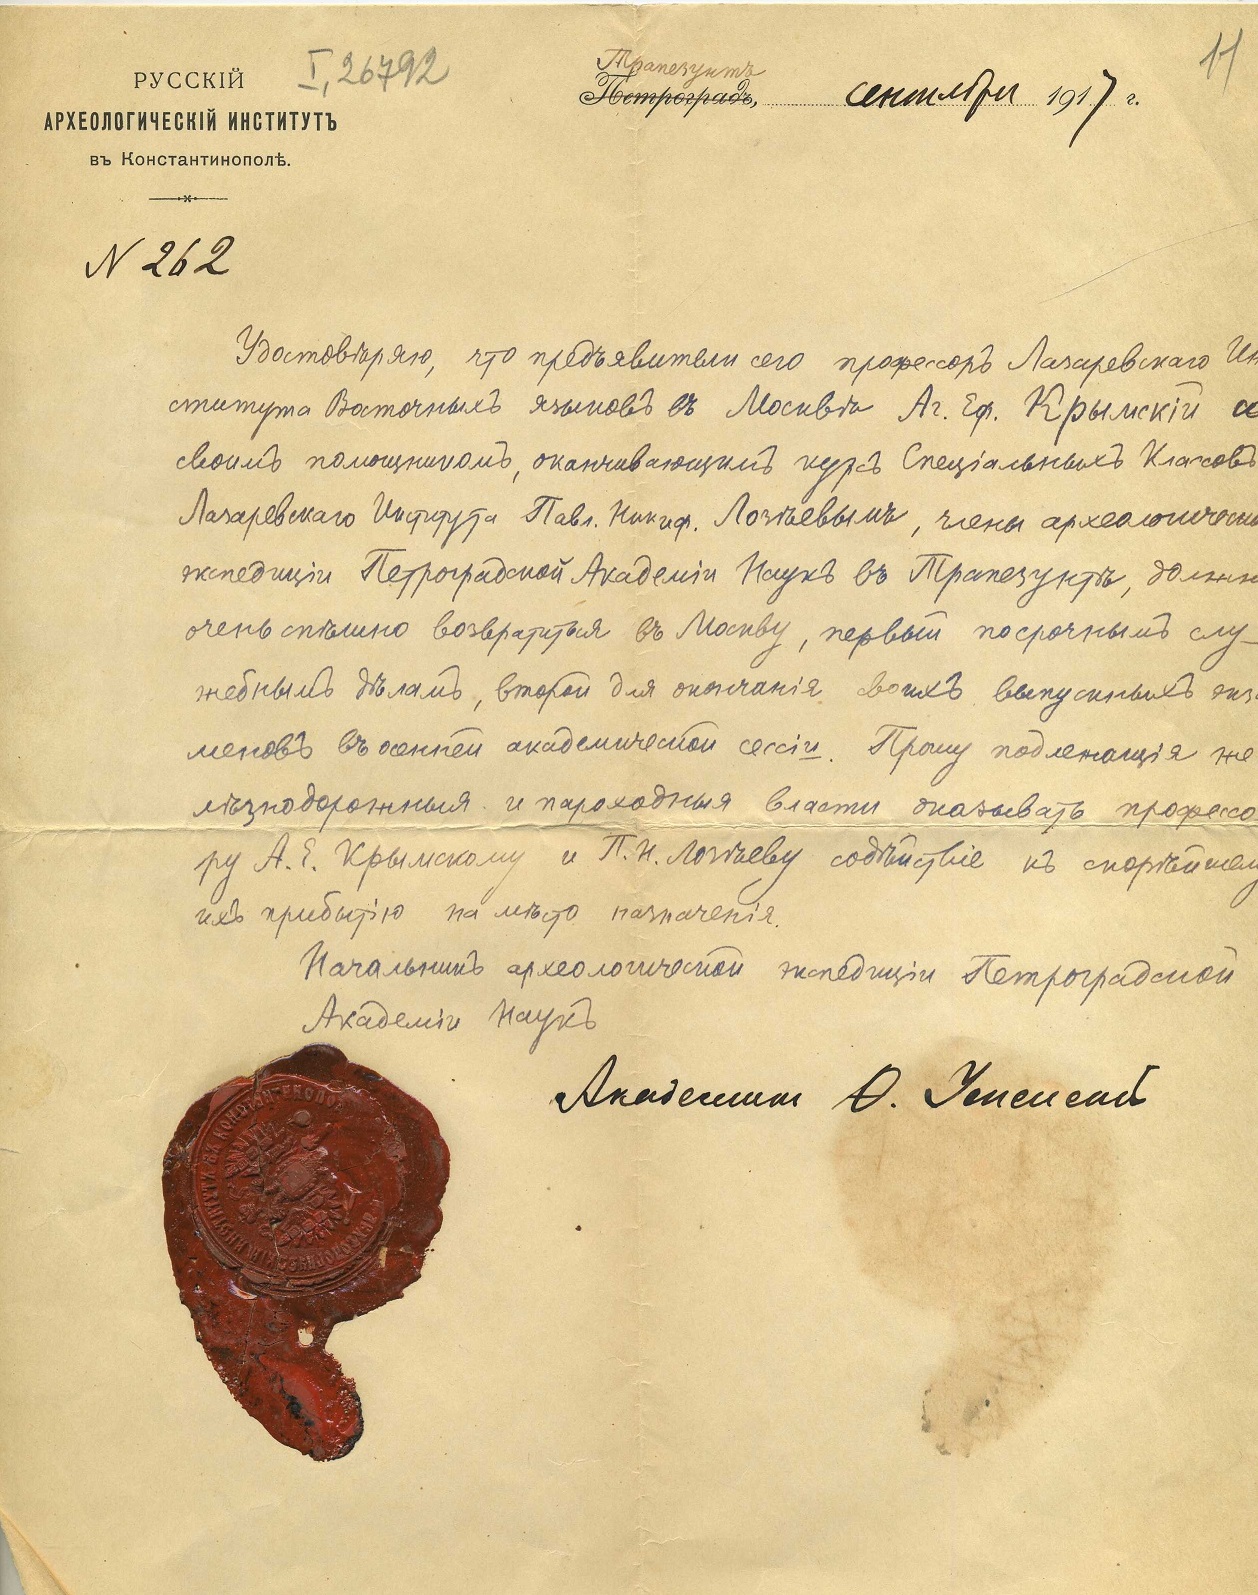 I, 26792
11
РУССКІЙ
АРХЕОЛОГИЧЕСКІЙ ИНСТИТУТЪ
въ Константинополѣ.
Трапезунтъ
Петроградъ, сентября 1917 г.
N 262
Удостовѣряю, что предъявители сего профессоръ Лазаревскаго Ин
ститута Восточныхъ языковъ въ Москвѣ Аг. Еф. Крымскій с
своимъ помощникомъ, оканчивающимъ курсъ Спеціальныхъ Классовъ
Лазаревскаго Института Павл. Никиф. Лозѣевымъ, члены археологическо
экспедиціи Петроградской Академіи Наукъ въ Трапезунтѣ, должн
очень спѣшно возвратиться въ Москву, первый по срочнымъ слу-
жебнымъ дѣламъ, второй для окончанія своихъ выпускныхъ экза
меновъ въ осенней академической сессіи. Прошу подлежащія же
лѣзнодорожныя и пароходныя власти оказывать профессо
ру А. Е. Крымскому и П. Н. Лозѣеву содѣйствіе къ скорѣйшему
ихъ прибытію на мѣсто назначенія.
Начальникъ археологической экспедиціи Петроградской
Академіи Наукъ
Академик Ѳ. Успенский